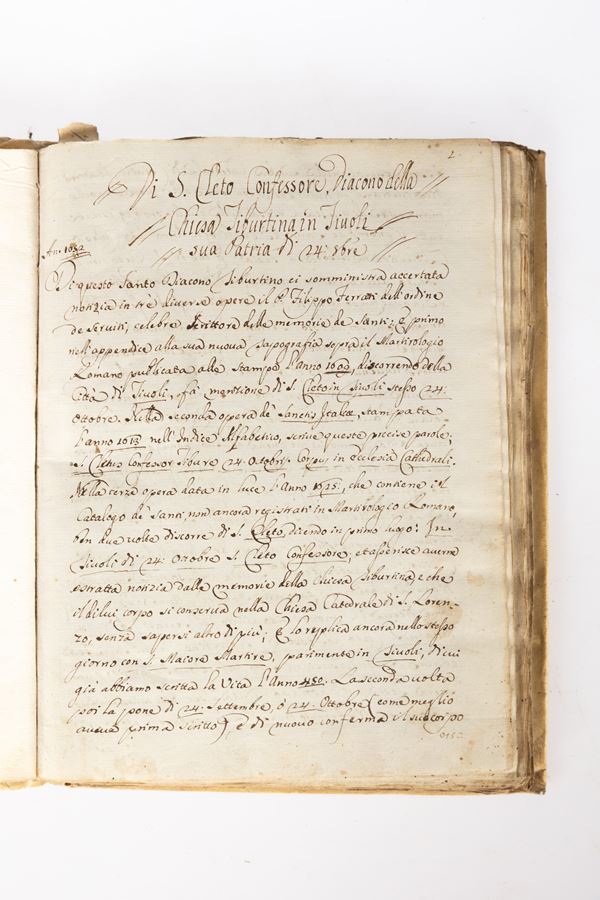 2
Di S. Cleto Confessore, Diacono della
Chiesa Tiburtina in Tivoli
sua Patria di 24: 8bre
An: 1032
Di questo Santo Diacono Tiburtino ci somministra accertata
notizia in trè diverse opere il P. Filippo Ferrari dell'ordine
de Serviti, celebre Scrittore delle memorie de Santi: è primo
nell'appendice alla sua nuova Topografia sopra il Martirologio
Romano publicata alle stampe l'anno 1609, discorrendo della
Città di Tivoli, fà menzione di S. Cleto in Tivoli stesso 24:
Ottobre. Nella seconda opera de Sanctis Italiæ, stampata
l'anno 1613 nell'Indice Alfabetico, scrive queste precise parole,
S. Cletus Confessor Tibure 24. Octobris. Corpus in Ecclesia Cathedrali.
Nella terza opera data in luce l'Anno 1625:, che contiene il
Catalogo de Santi, non ancora registrati in Martirologio Romano,
ben due volte discorre di S. Cleto, dicendo in primo luogo: In
Tivoli di 24: Ottobre S. Cleto Confessore; et asserisce averne
estratta notizia dalle memorie della Chiesa Tiburtina, e che
il di lui corpo si conserva nella Chiesa Catedrale di S. Loren-
zo, senza sapersi altro di più; E lo replica ancora nello stesso
giorno con S. Maiore Martire, parimente in Tivoli, di cui
già abbiamo scritta la Vita l'Anno 450. La seconda volta
poi la pone di 24: Settembre, ò 24: Ottobre (come meglio
aveva prima scritto) e di nuovo conferma il suo corpo